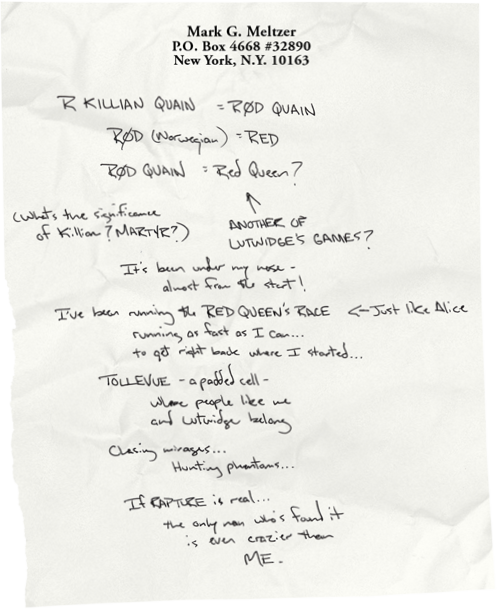 Mark G. Meltzer
P.O. Box 4668 #32890
New York, N.Y. 10163
R KILLIAN QUAIN = RØD QUAIN
RØD (Norwegian) = RED
RØD QUAIN = Red Queen?
(What's the significance
of Killian? MARTYR?)
ANOTHER OF
LUTWIDGE'S GAMES?
It's been under my nose -
almost from the start!
I've been running the RED QUEEN'S RACE <- Just like Alice
running as fast as I can...
to get right back where I started...
TOLLEVUE - a padded cell -
where people like me
and Lutwidge belong
Chasing mirages...
Hunting phantoms...
If RAPTURE is real...
the only man who's found it
is even crazier than
ME.